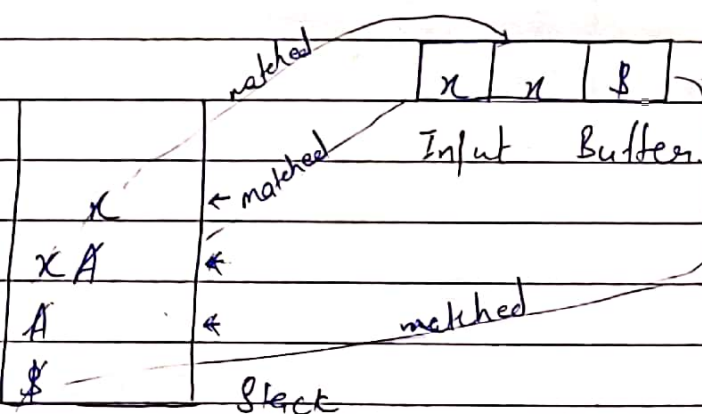 matched
x x $
Input Buffer
← matched
x
x A ←
A ←
matched
$
Stack